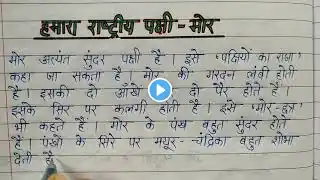 हमारा राष्ट्रीय पक्षी - मोर
मोर अत्यंत सुंदर पक्षी है । इसे 'पक्षियों का राजा'
कहा जा सकता है । मोर की गरदन लंबी होती
है । इसकी दो आँखें और दो पैर होते हैं ।
इसके सिर पर कलगी होती है । इसे 'मोर-छत्र'
भी कहते हैं । मोर के पंख बहुत सुंदर होते
हैं । पंखों के सिरे पर मयूर - चंद्रिका बहुत शोभा
देती है